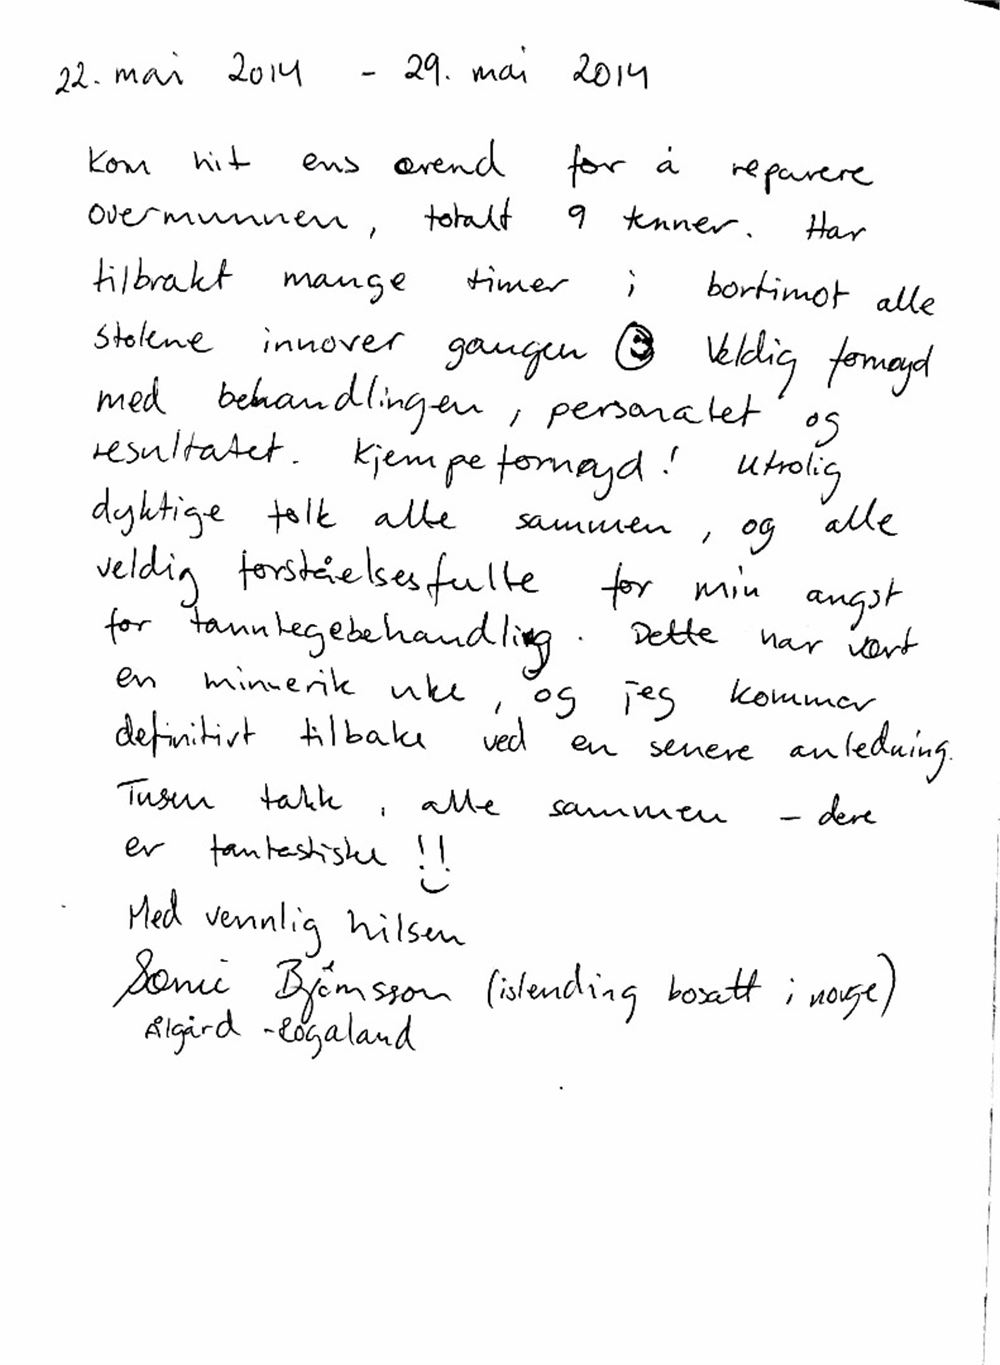 22. mai 2014 - 29. mai 2014
Kom hit ens ærend for å reparere
overmunnen, totalt 9 tenner. Har
tilbrakt mange timer i bortimot alle
stolene innover gangen ☺ Veldig fornøyd
med behandlingen, personalet og
resultatet. Kjempefornøyd! Utrolig
dyktige folk alle sammen, og alle
veldig forståelsesfulle for min angst
for tannlegebehandling. Dette har vært
en minnerik uke, og jeg kommer
definitivt tilbake ved en senere anledning.
Tusen takk, alle sammen - dere
er fantastiske !!
Med vennlig hilsen
Björnsson (islending bosatt i norge)
Ålgård - Rogaland